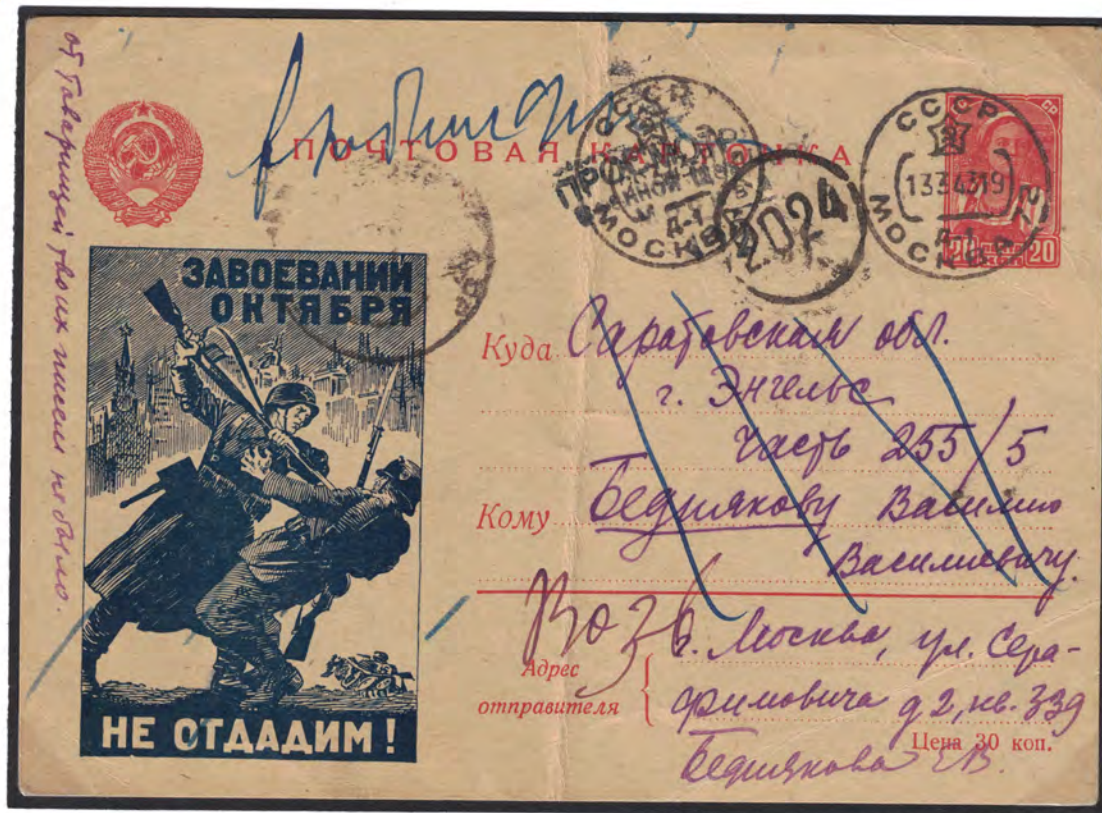 от Таварищей твоих писем не было.
ПОЧТОВАЯ КАРТОЧКА
СССР
МОСКВА
2024
СССР
1334319
МОСКВА
20 20
ЗАВОЕВАНИЙ
ОКТЯБРЯ
НЕ ОТДАДИМ!
Куда Саратовская обл.
г. Энгельс
часть 255/5
Кому Беднякову Василию
Василиевичу.
Возв
Адрес отправителя
г. Москва, ул. Сера-
фимовича д 2, кв. 339
Цена 30 коп.
Беднякова ЕВ.